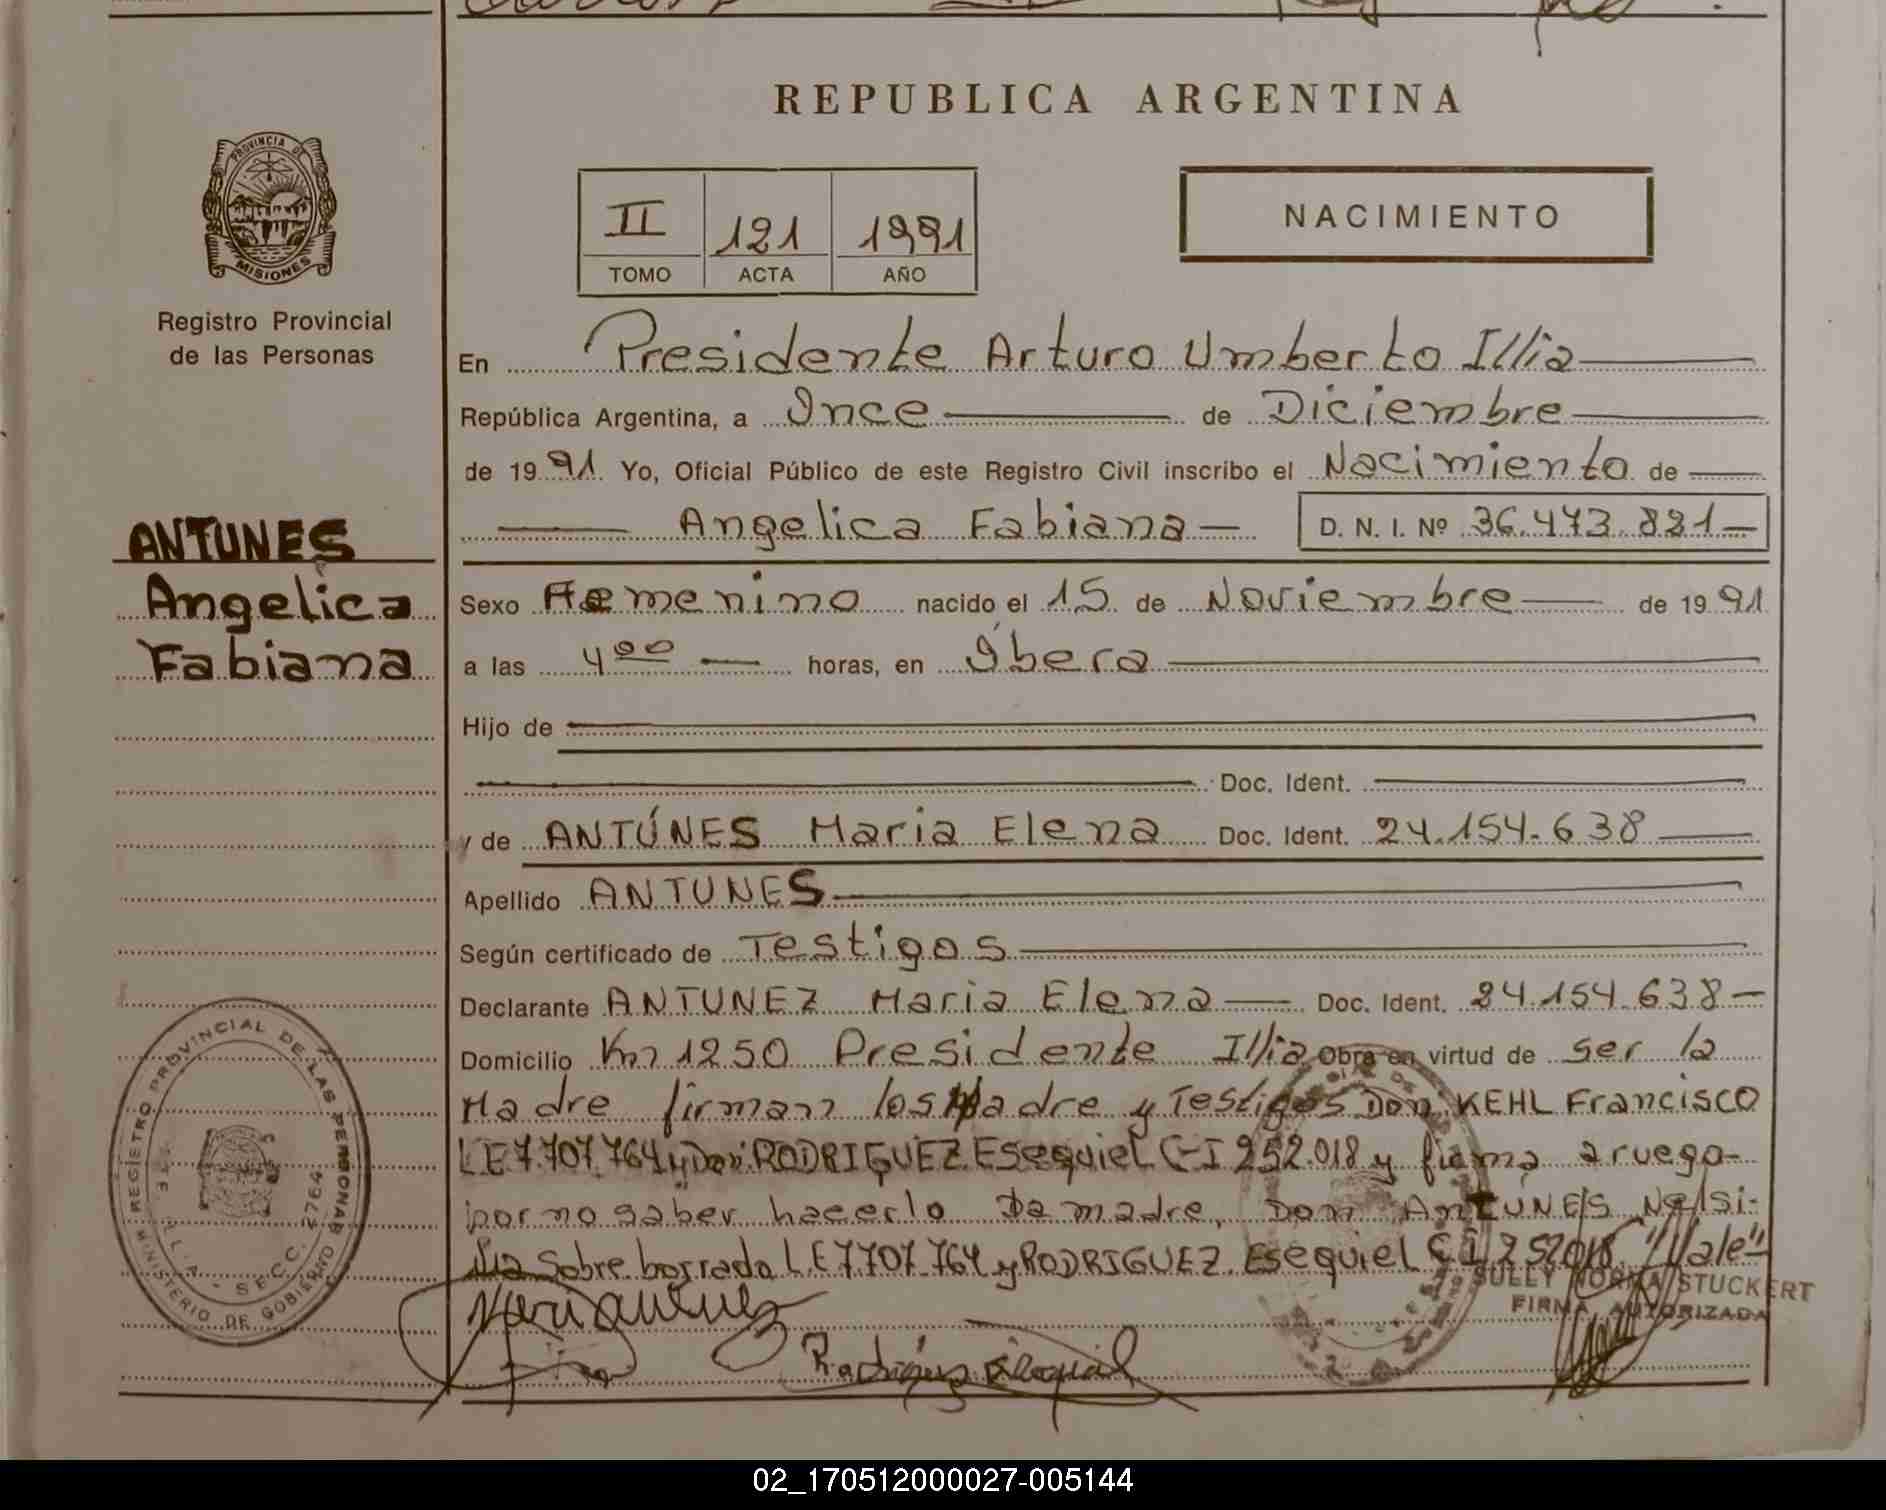 REPUBLICA ARGENTINA
PROVINCIA DE
MISIONES
Registro Provincial
de las Personas
II 121 1991
TOMO ACTA AÑO
NACIMIENTO
En Presidente Arturo Umberto Illia
República Argentina, a Once de Diciembre
de 1991 Yo, Oficial Público de este Registro Civil inscribo el Nacimiento de
Angelica Fabiana D. N. I. Nº 36.473.821
ANTUNES
Angelica
Fabiana
Sexo Femenino nacido el 15 de Noviembre de 1991
a las 4 00 horas, en Íbera
Hijo de
Doc. Ident.
y de ANTÚNES Maria Elena Doc. Ident. 24.154.638
Apellido ANTUNES
Según certificado de Testigos
Declarante ANTUNEZ Maria Elena Doc. Ident. 24.154.638
Domicilio Km 1250 Presidente Illia Obra en virtud de ser la
Madre firman los Madre y Testigos Don KEHL Francisco
LE 7.707.764 y Don RODRIGUEZ Esequiel C-I 252.018 y firma a ruego
por no saber hacerlo la madre, Don ANTUNES Nelsi-
Sobre borrado LE 7707.764 y RODRIGUEZ Esequiel CI 252018 "Vale"
SULLY NORMA STUCKERT
FIRMA AUTORIZADA
REGISTRO PROVINCIAL DE LAS PERSONAS
MINISTERIO DE GOBIERNO
SECC. 2764
02_170512000027-005144